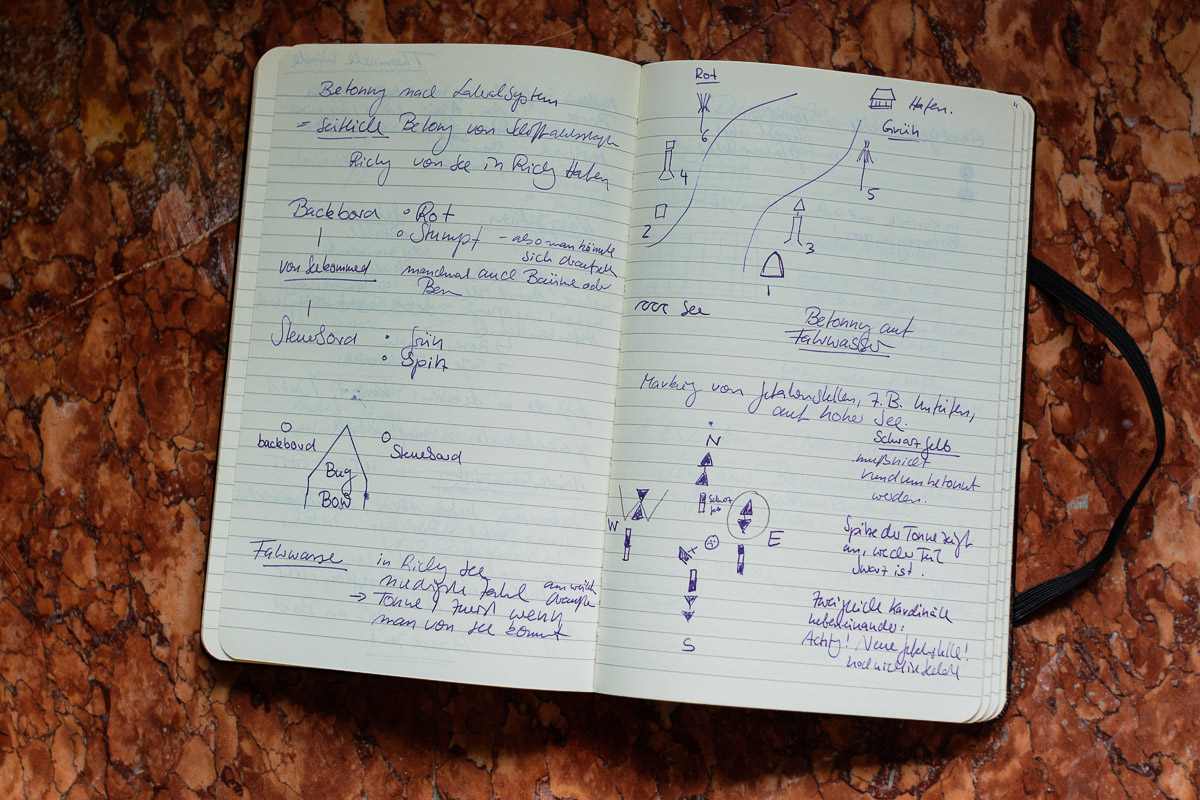 Betonny nach LateralSystem
= Seitliche Betong von
Richg von See in Richg Hafen
Backbord • Rot
• Stumpf – also man könnte
sich draufsetz
von See kommed manchmal auch Bäume oder
Besen
Steuebord • Grün
• Spitz
backbord
Steuebord
Bug
Bow
Fahrwasse in Richg See
niedrigste Zahl am weitest
drauße
→ Tonne 1 zuerst wenn
man von See kommt
Rot
6
4
2
Hafen.
Grün
5
3
1
See
Betonny auf
Fahrwasser
Markieg von Gefahrenstellen, z.B. Untiefen,
auf hoher See.
N
Schwarz Gelb
muß nicht
rundum betonnt
werden.
Schwarz
Gelb
W
E
Spitze der Tonne zeigt
an, wo der Teil
Schwarz ist.
S
Zwei gleiche Kardinäle
nebeneinander:
Achtg! Neue Gefahrstelle!
noch nicht in